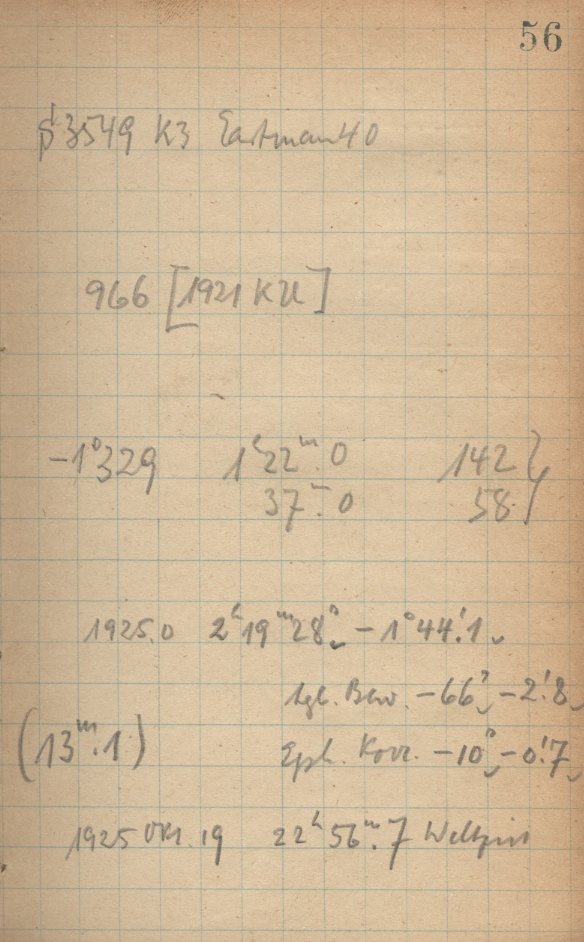 56
3549 K3 Eastman 40
966 [1921 KU]
-1°329 1ʰ22ᵐ.0 142 }
37ᵐ.0 58 }
1925.0 2ʰ19ᵐ28ˢ -1°44'.1
tgl. Bew. -66ˢ -2'.8
(13ᵐ.1) Eph. Korr. -10ˢ -0'.7
1925 Okt. 19 22ʰ56ᵐ.7 Weltzeit